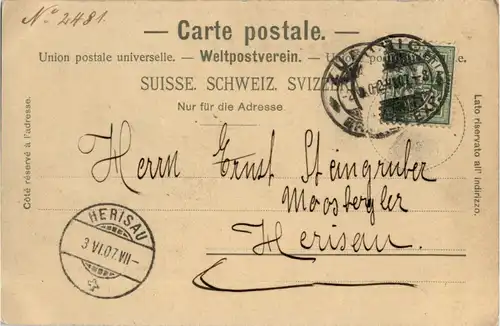 No. 2481.
Carte postale.
Union postale universelle. — Weltpostverein. — Unione postale universale.
SUISSE. SCHWEIZ. SVIZZERA.
Nur für die Adresse
Côté réservé à l'adresse.
Lato riservato all' indirizzo.
Herrn Ernst Steingruber
Moosbergler
Herisau.
HERISAU
3 VI.07.VII–